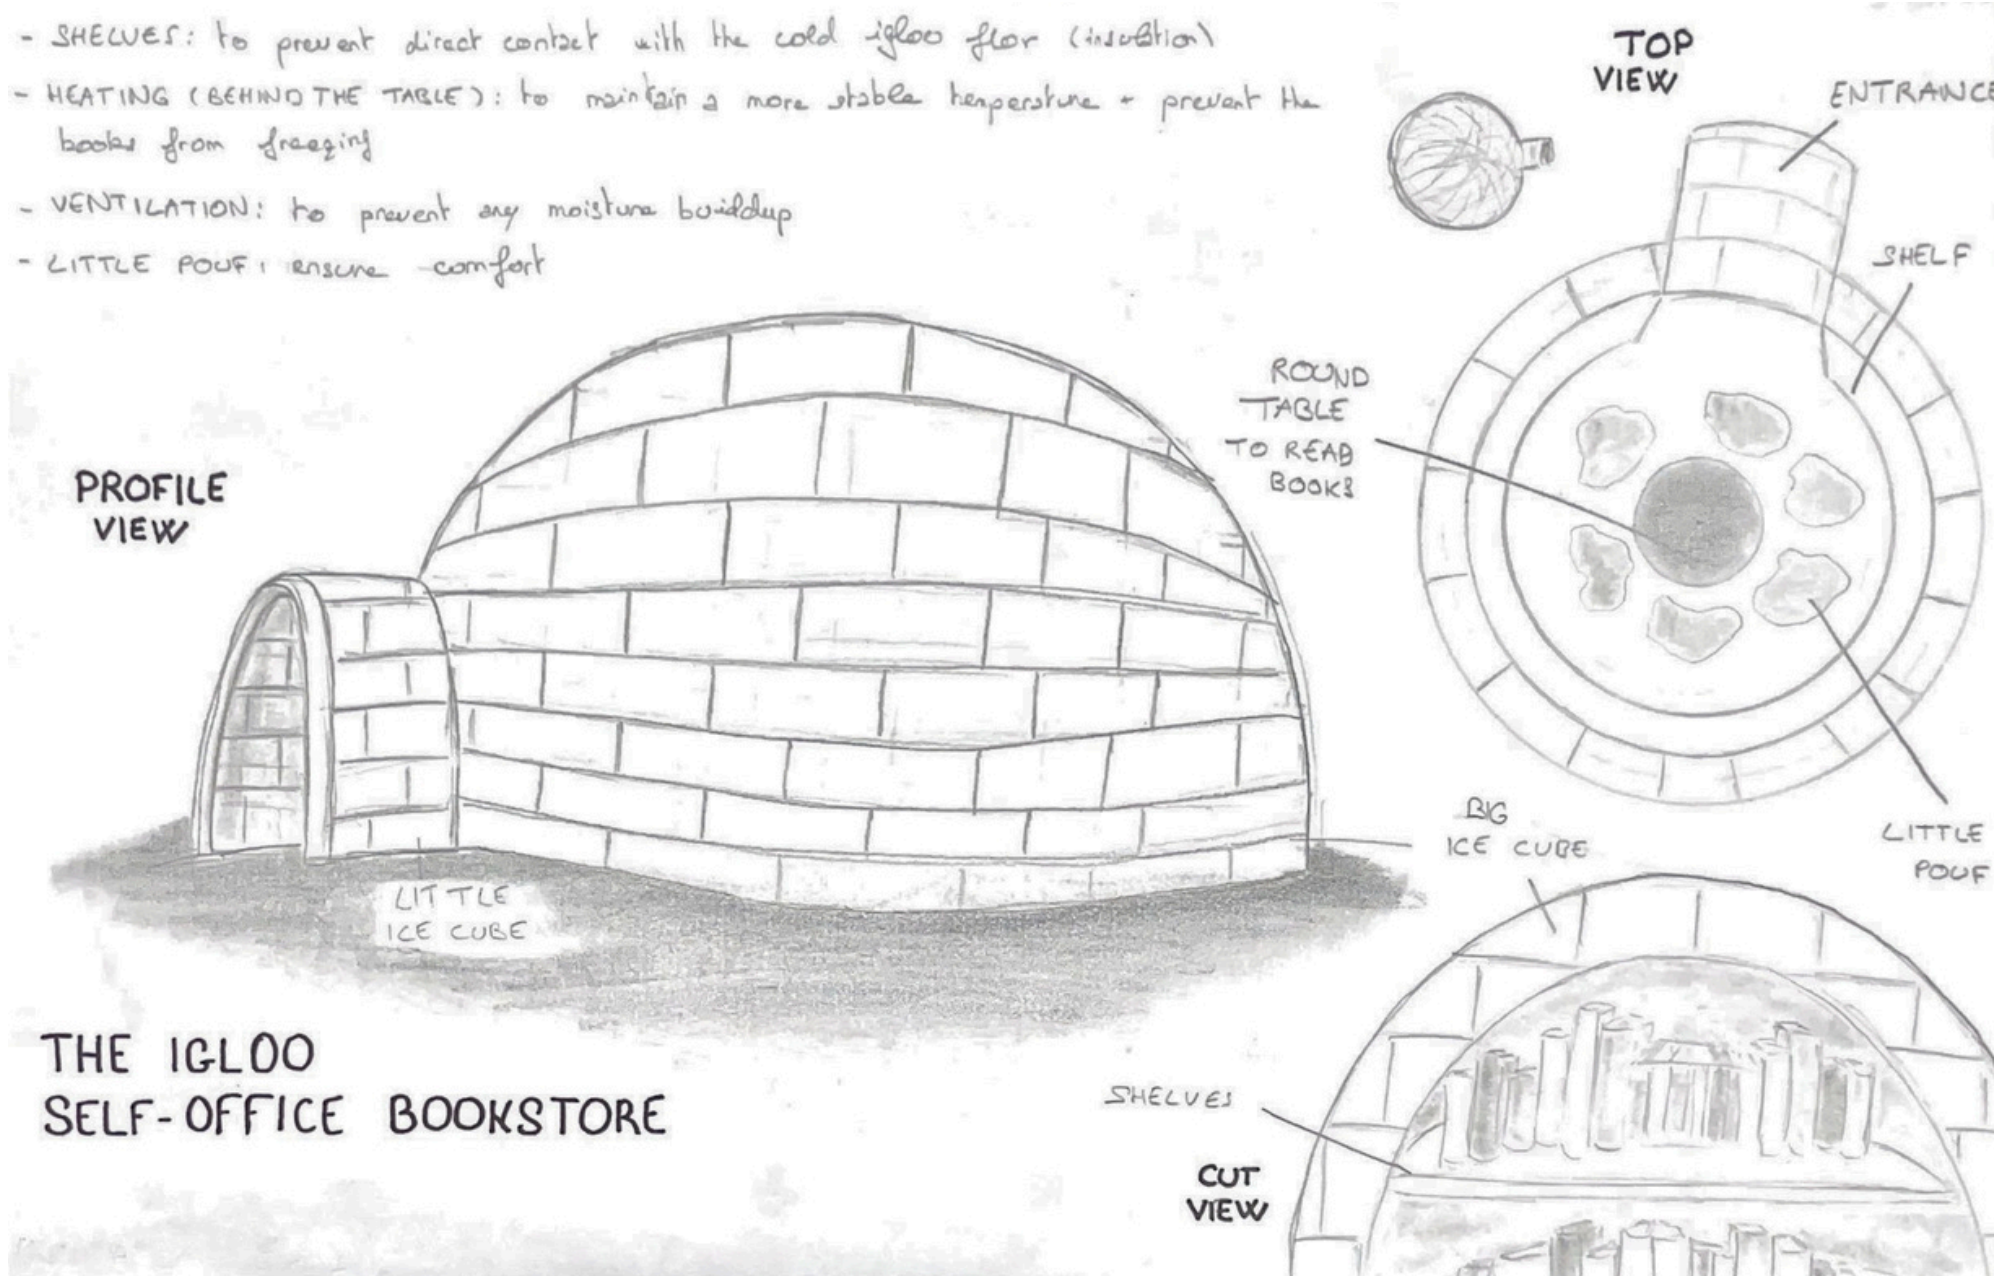 - SHELVES: to prevent direct contact with the cold igloo flor (insulation)
- HEATING (BEHIND THE TABLE): to maintain a more stable temperature + prevent the
books from freezing
- VENTILATION: to prevent any moisture buildup
- LITTLE POUF: ensure comfort
TOP
VIEW
ENTRANCE
SHELF
ROUND
TABLE
TO READ
BOOKS
LITTLE
POUF
PROFILE
VIEW
LITTLE
ICE CUBE
BIG
ICE CUBE
SHELVES
CUT
VIEW
THE IGLOO
SELF-OFFICE BOOKSTORE